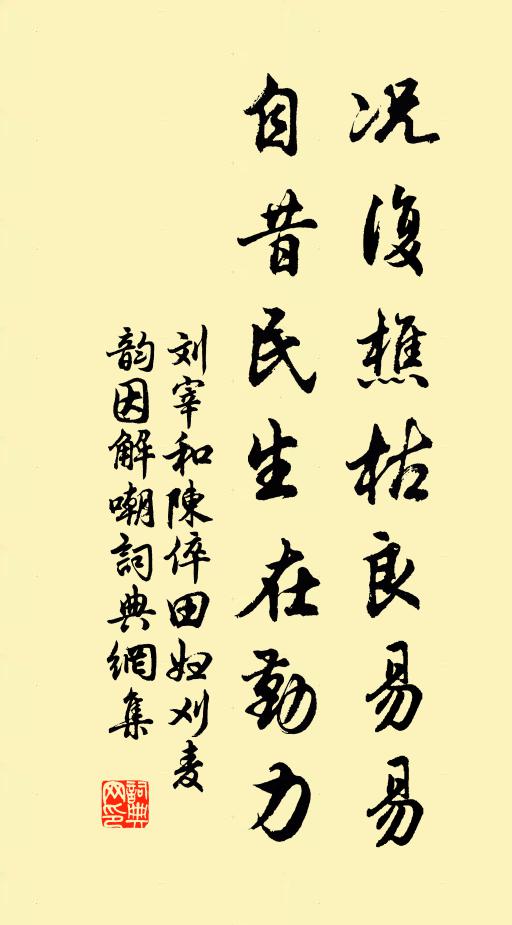 况復樵枯良易易
自昔民生在勤力
刘宰和陳倅田妇刈麦
韵因解嘲詞典網集
詞典网印